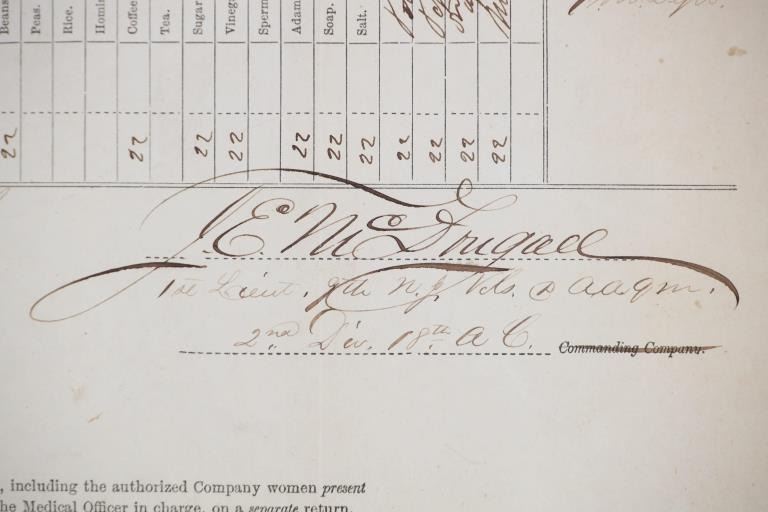 Beans
Peas.
Rice.
Coffee
Tea.
Sugar
Sperm
Adam
Soap.
Salt.
22 22 22 22 22 22 22 22 22 22 22
J. E. McDougall
1st Lieut. 9th N. J. Vols. & a.a.q.m.
2nd Div. 18th A C. Commanding Company.
, including the authorized Company women present
he Medical Officer in charge, on a separate return.